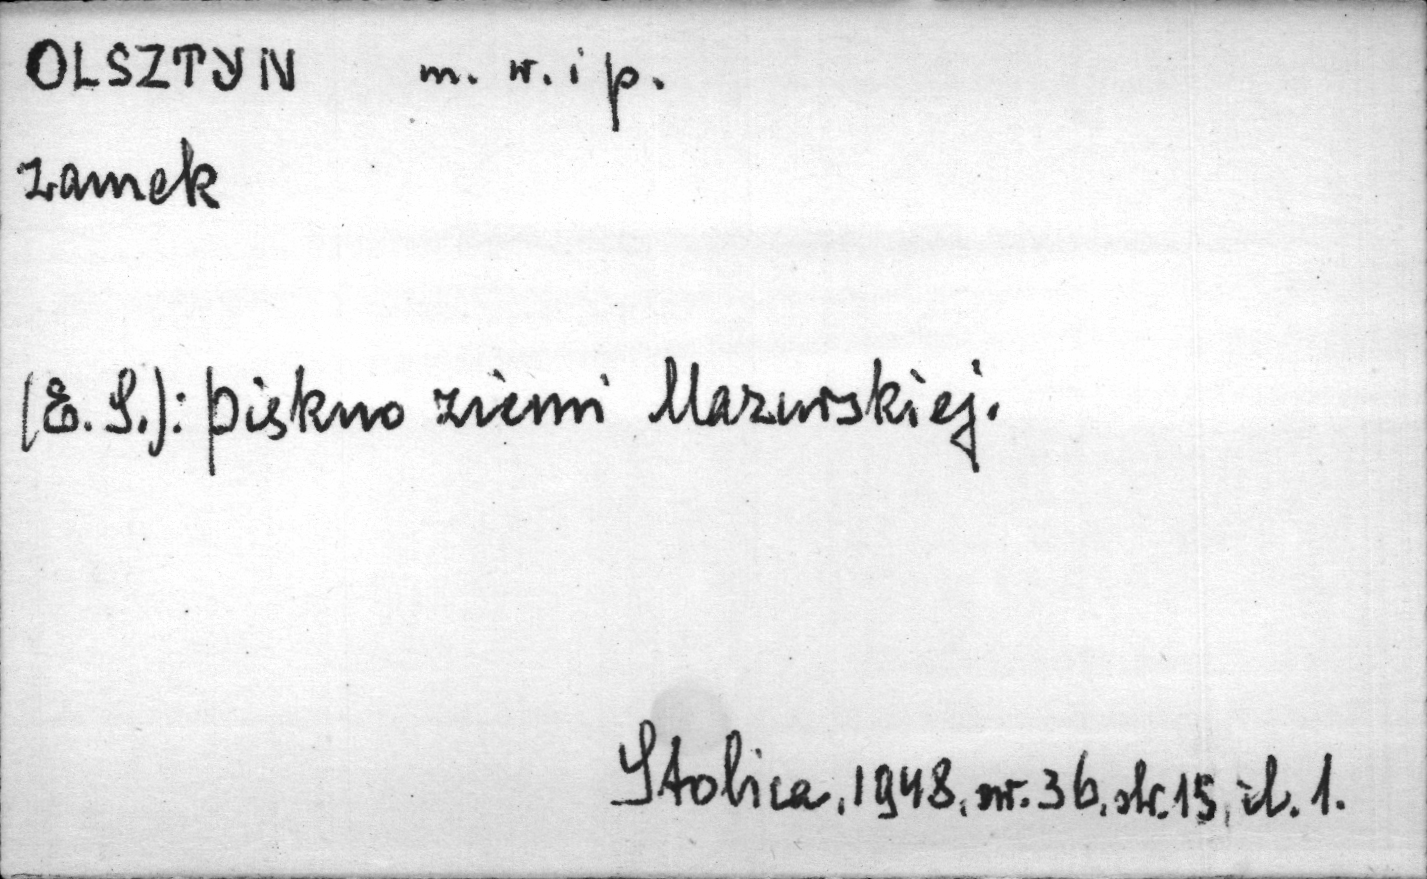 OLSZTYN m. w. i p.
zamek
(E. S.): Piękno ziemi Mazurskiej.
Stolica, 1948, nr. 36, str. 15, il. 1.